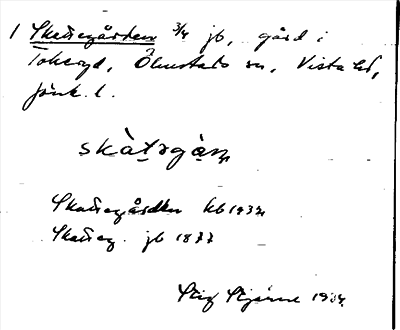 1 Skattegården 3/4 jb, gård i
Tokeryd, Ölmstads sn, Vista hd,
Jönk. l.
skàtəgàɳ
Skattegården kb 1932
Skatteg. jb 1877
Stig Stjärne 1934